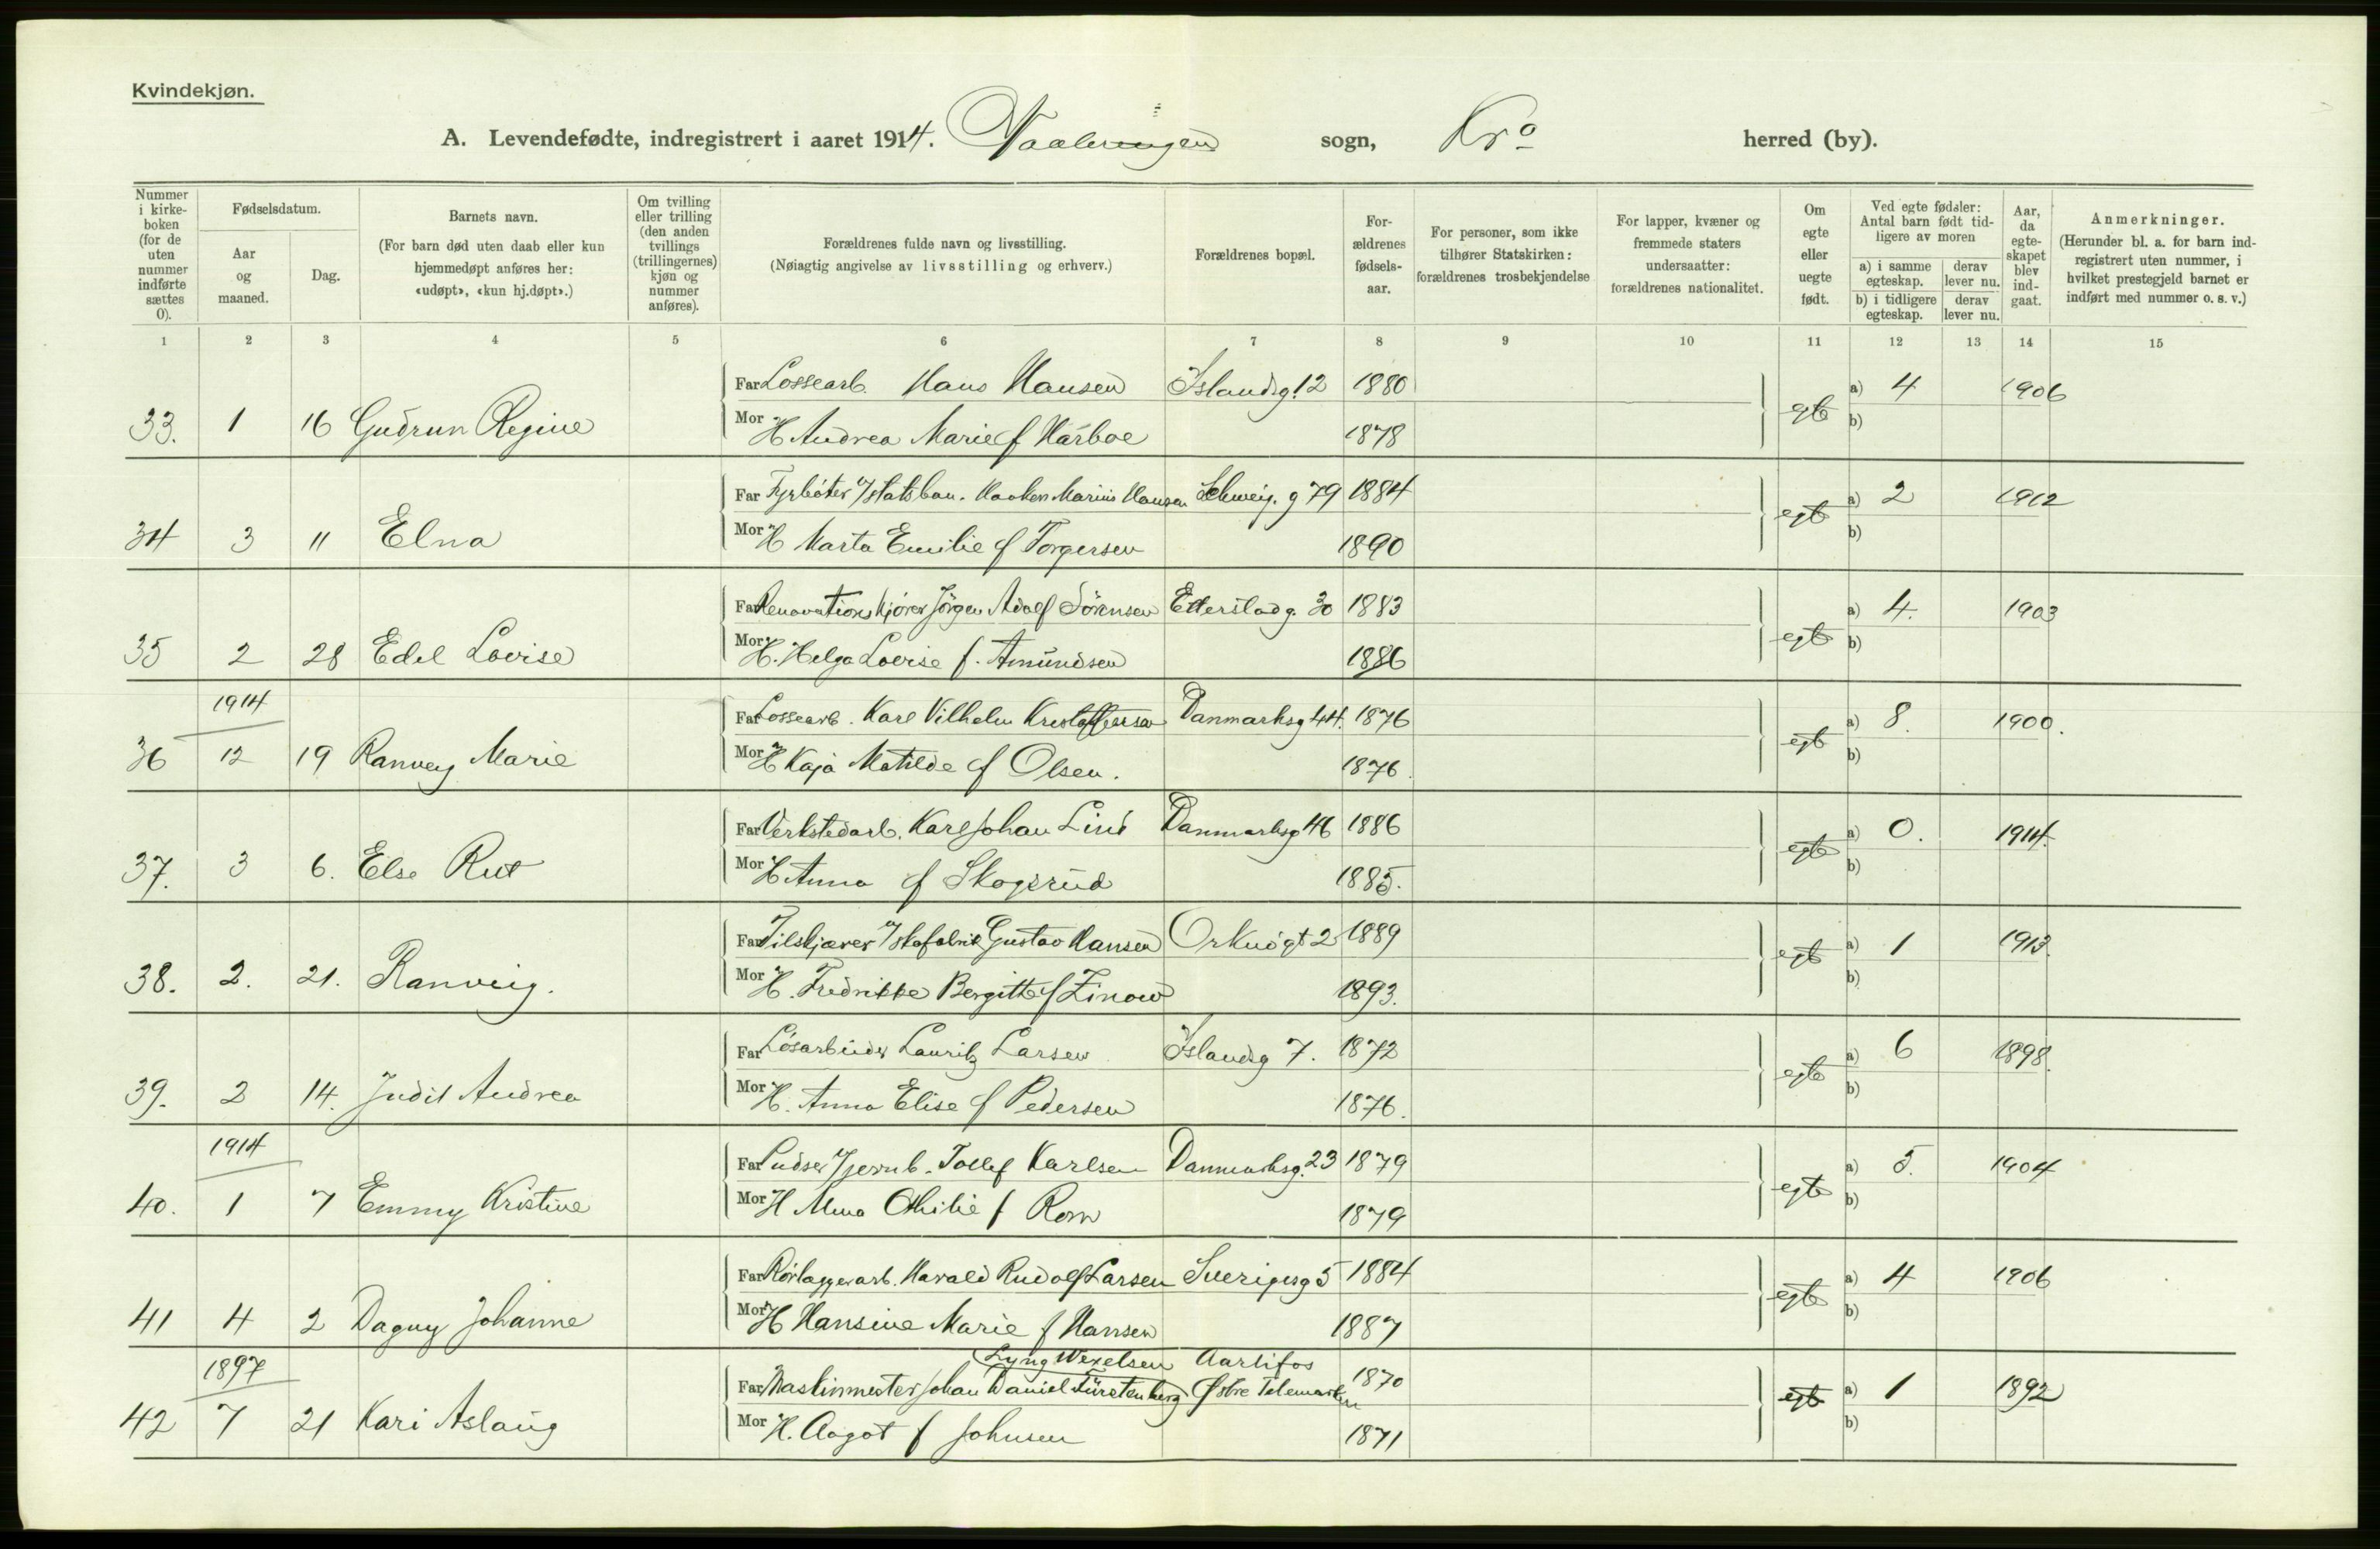 Kvindekjøn.
A. Levendefødte, indregistrert i aaret 1914. Vaalerengen sogn, Kra herred (by).
Nummer i kirke-boken (for de uten nummer indførte sættes 0).
Fødselsdatum.
Aar og maaned.
Dag.
Barnets navn.
(For barn død uten daab eller kun hjemmedøpt anføres her: «udøpt», «kun hj.døpt».)
Om tvilling eller trilling (den anden tvillings (trillingernes) kjøn og nummer anføres).
Forældrenes fulde navn og livsstilling.
(Nøiagtig angivelse av livsstilling og erhverv.)
Forældrenes bopæl.
For-ældrenes fødsels-aar.
For personer, som ikke tilhører Statskirken: forældrenes trosbekjendelse
For lapper, kvæner og fremmede staters undersaatter: forældrenes nationalitet.
Om egte eller uegte født.
Ved egte fødsler: Antal barn født tid-ligere av moren
a) i samme egteskap.
derav lever nu.
b) i tidligere egteskap.
derav lever nu.
Aar, da egte-skapet blev ind-gaat.
Anmerkninger.
(Herunder bl. a. for barn ind-registrert uten nummer, i hvilket prestegjeld barnet er indført med nummer o. s. v.)
1 2 3 4 5 6 7 8 9 10 11 12 13 14 15
Far Lossearb. Hans Hansen Islandsg. 12 1880 a) 4 1906
33. 1 16 Gudrun Regine Mor H Andrea Marie f Harboe 1878 egte b)
Far Fyrbøter v/statsban. Haaken Marius Hansen Schweig. g 79 1884 a) 2 1912
34 3 11 Elna Mor H Marta Emilie f Torgersen 1890 egte b)
Far Renovationskjører Jörgen Adolf Sörensen Etterstadg. 30 1883 a) 4. 1903
35 2 28 Edel Lovise Mor H. Helga Lovise f. Amundsen 1886 egte b)
1914
Far Lossearb. Karl Vilhelm Kristoffersen Danmarksg 44. 1876 a) 8. 1900.
36 12 19 Ranveig Marie Mor H Kaja Matilde f Olsen. 1876. egte b)
Far Verkstedarb. Karl Johan Lind Danmarksg 46 1886 a) 0. 1914.
37. 3 6. Else Rut Mor H Anna f Skogsrud 1885. egte b)
Far Tilskjærer v/skofabrik Gustav Hansen Orknögt 2 1889 a) 1 1913.
38. 2. 21. Ranveig. Mor H. Fredrikke Bergitte f Zinow 1893. egte b)
Far Lösarbeider Lauritz Larsen Islandsg 7. 1872 a) 6 1898.
39. 2 14. Judit Andrea Mor H. Anna Elise f Pedersen 1876. egte b)
1914
Far Pudser v/jernb. Tollef Karlsen Danmarksg. 23 1879 a) 5. 1904
40. 1 7 Emmy Kristine Mor H Othilie f 1879 egte b)
Far Rörlæggerarb. Harald Rudolf Larsen Sverigesg 5 1884 a) 4 1906
41 4 2 Dagny Johanne Mor H Hansine Marie f Hansen 1887 egte b)
1897 Lyng Wexelsen Aarlifos
Far Maskinmester Johan Daniel Fürstenberg Østre Telemarken 1870 a) 1 1892
42 7 21 Kari Aslaug Mor H. Aagot f Johnsen 1871 egte b)